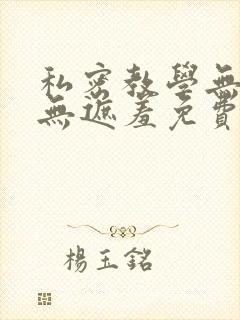 私密教學無
無遮羞免費
楊玉銘